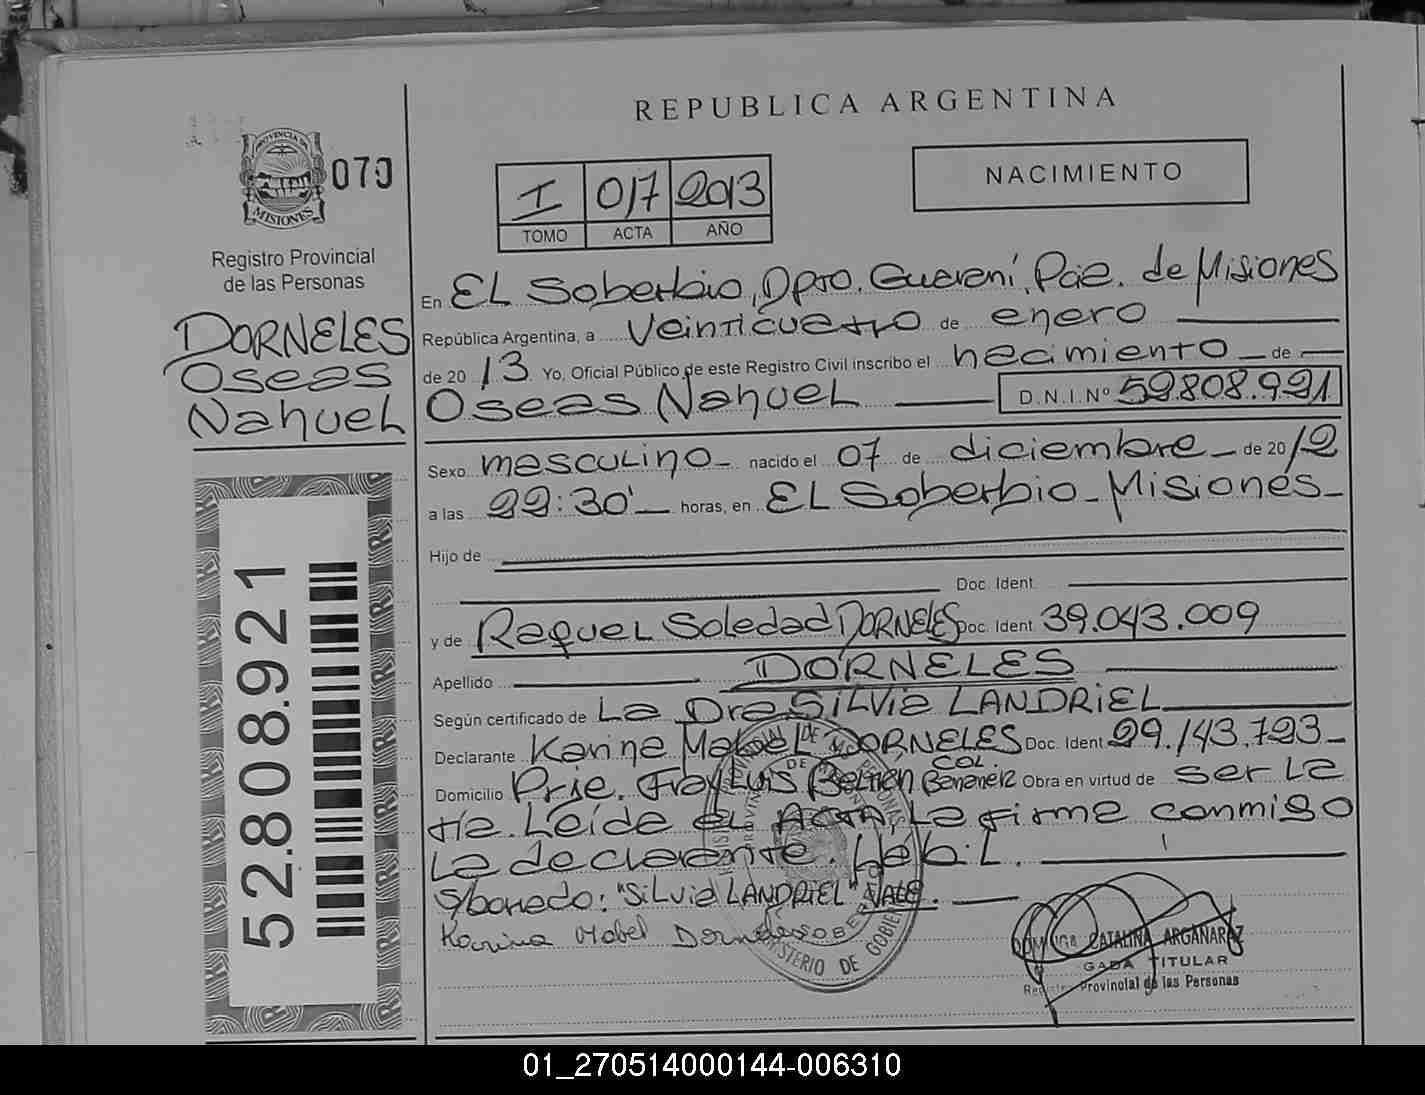 REPUBLICA ARGENTINA
PROVINCIA DE
MISIONES
070
Registro Provincial
de las Personas
DORNELES
Oseas
Nahuel
52.808.921
I 017 2013
TOMO ACTA AÑO
NACIMIENTO
En El Soberbio, Dpto. Guaraní, Pcia. de Misiones
República Argentina, a Veinticuatro de enero
de 20 13 Yo, Oficial Público de este Registro Civil inscribo el nacimiento de
Oseas Nahuel D.N.I. Nº 52.808.921
Sexo masculino nacido el 07 de diciembre de 20 12
a las 22:30' horas, en El Soberbio - Misiones
Hijo de
Doc. Ident.
y de Raquel Soledad DORNELES Doc. Ident. 39.043.009
Apellido DORNELES
Según certificado de La Dra Silvia LANDRIEL
Declarante Karina Mabel DORNELES Doc. Ident. 29.143.723
Domicilio Prje. Fray Luis Beltrán Col. Obra en virtud de ser la
tía. Leída el Acta, La firma conmigo
la declarante.
S/borrado: "Silvia LANDRIEL" VALE.
Karina Mabel Dorneles
MINISTERIO DE GOBIERNO
CATALINA ARGAÑARAZ
TITULAR
Registro Provincial de las Personas
01_270514000144-006310